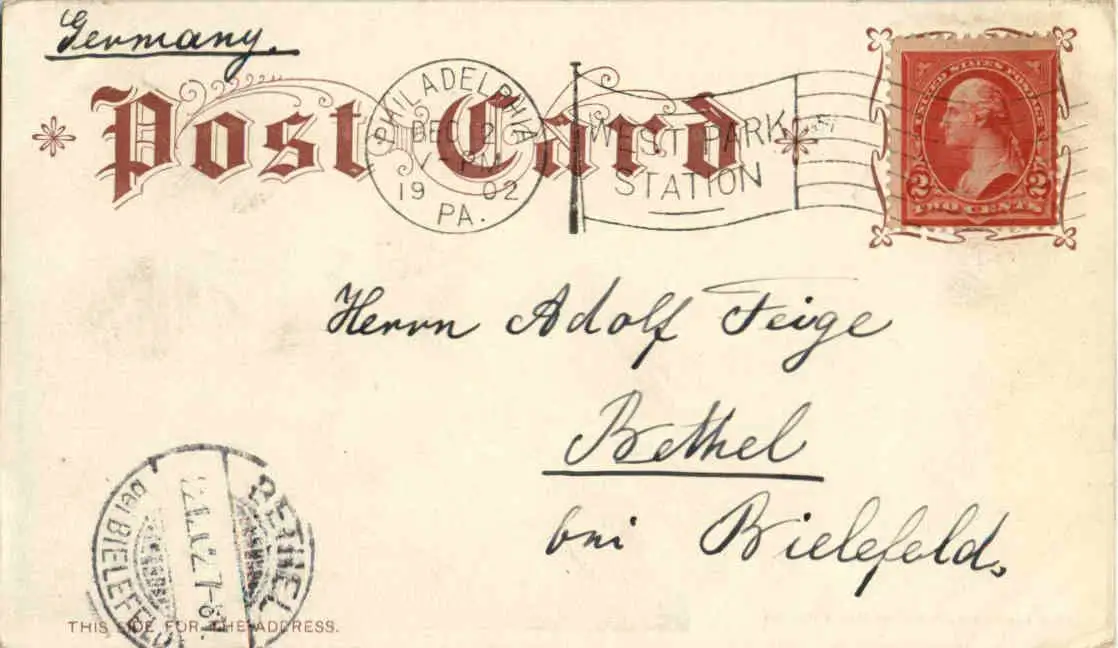 Germany.
Post Card
PHILADELPHIA
DEC 2
PM
19 02
PA.
WEST PARK
STATION
UNITED STATES POSTAGE
2 2
TWO CENTS
Herrn Adolf Feige
Bethel
bei Bielefeld.
BETHEL
bei BIELEFELD
THIS SIDE FOR THE ADDRESS.